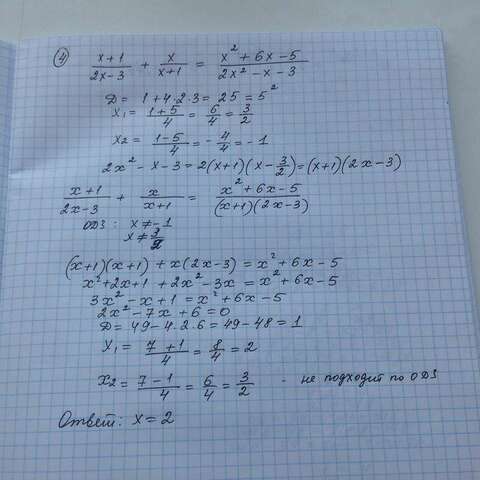 ④ (x+1)/(2x-3) + x/(x+1) = (x²+6x-5)/(2x²-x-3)
D = 1+4·2·3 = 25 = 5²
x₁ = (1+5)/4 = 6/4 = 3/2
x₂ = (1-5)/4 = -4/4 = -1
2x²-x-3 = 2(x+1)(x-3/2) = (x+1)(2x-3)
(x+1)/(2x-3) + x/(x+1) = (x²+6x-5)/((x+1)(2x-3))
ОДЗ: x≠-1
x≠3/2
(x+1)(x+1) + x(2x-3) = x²+6x-5
x²+2x+1+2x²-3x = x²+6x-5
3x²-x+1 = x²+6x-5
2x²-7x+6=0
D = 49-4·2·6 = 49-48 = 1
x₁ = (7+1)/4 = 8/4 = 2
x₂ = (7-1)/4 = 6/4 = 3/2 - не подходит по ОДЗ
Ответ: x = 2